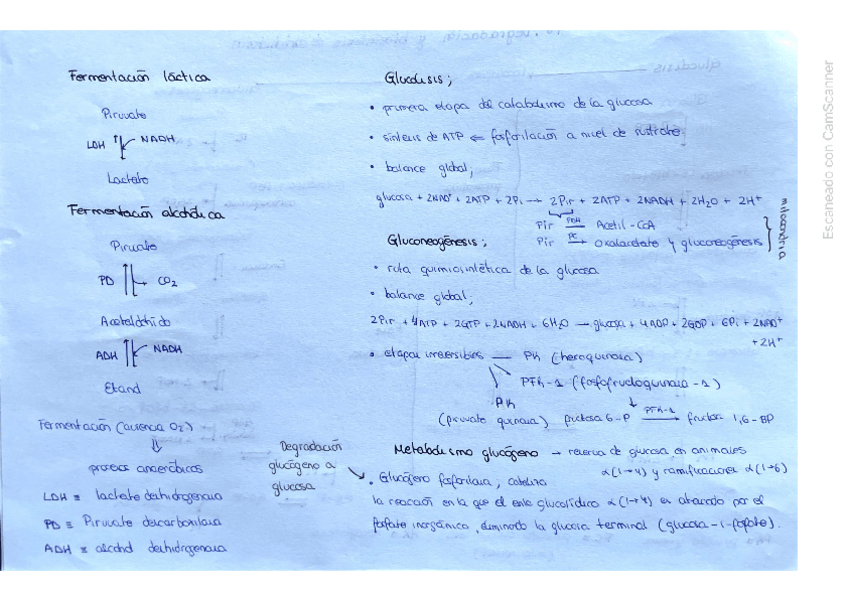 Fermentación láctica
Piruvato
LDH NADH
Lactato
Fermentación alcohólica
Piruvato
PD CO2
Acetaldehído
ADH NADH
Etanol
Fermentación (ausencia O2)
⇓
procesos anaeróbicos
LDH ≡ lactato deshidrogenasa
PD ≡ Piruvato descarboxilasa
ADH ≡ alcohol deshidrogenasa
Glucólisis;
• primera etapa del catabolismo de la glucosa
• síntesis de ATP ⇐ fosforilación a nivel de sustrato
• balance global;
glucosa + 2NAD+ + 2ATP + 2Pi → 2Pir + 2ATP + 2NADH + 2H2O + 2H+
Pir PDH→ Acetil-CoA
Pir PC→ Oxalacetato y gluconeogénesis
mitocondria
Gluconeogénesis;
• ruta quimiosintética de la glucosa
• balance global;
2Pir + 4ATP + 2GTP + 2NADH + 6H2O → glucosa + 4ADP + 2GDP + 6Pi + 2NAD+
+ 2H+
• etapas irreversibles — PK (hexoquinasa)
PFK-1 (fosfofructoquinasa-1)
PK
(piruvato quinasa) fructosa 6-P PFK-1→ fructosa 1,6-BP
Metabolismo glucógeno → reserva de glucosa en animales
α(1→4) y ramificaciones α(1→6)
Degradación
glucógeno a
glucosa
• Glucógeno fosforilasa, cataliza
la reacción en la que el enlace glucosídico α(1→4) es atacado por el
fosfato inorgánico, eliminado la glucosa terminal (glucosa-1-fosfato).
Escaneado con CamScanner